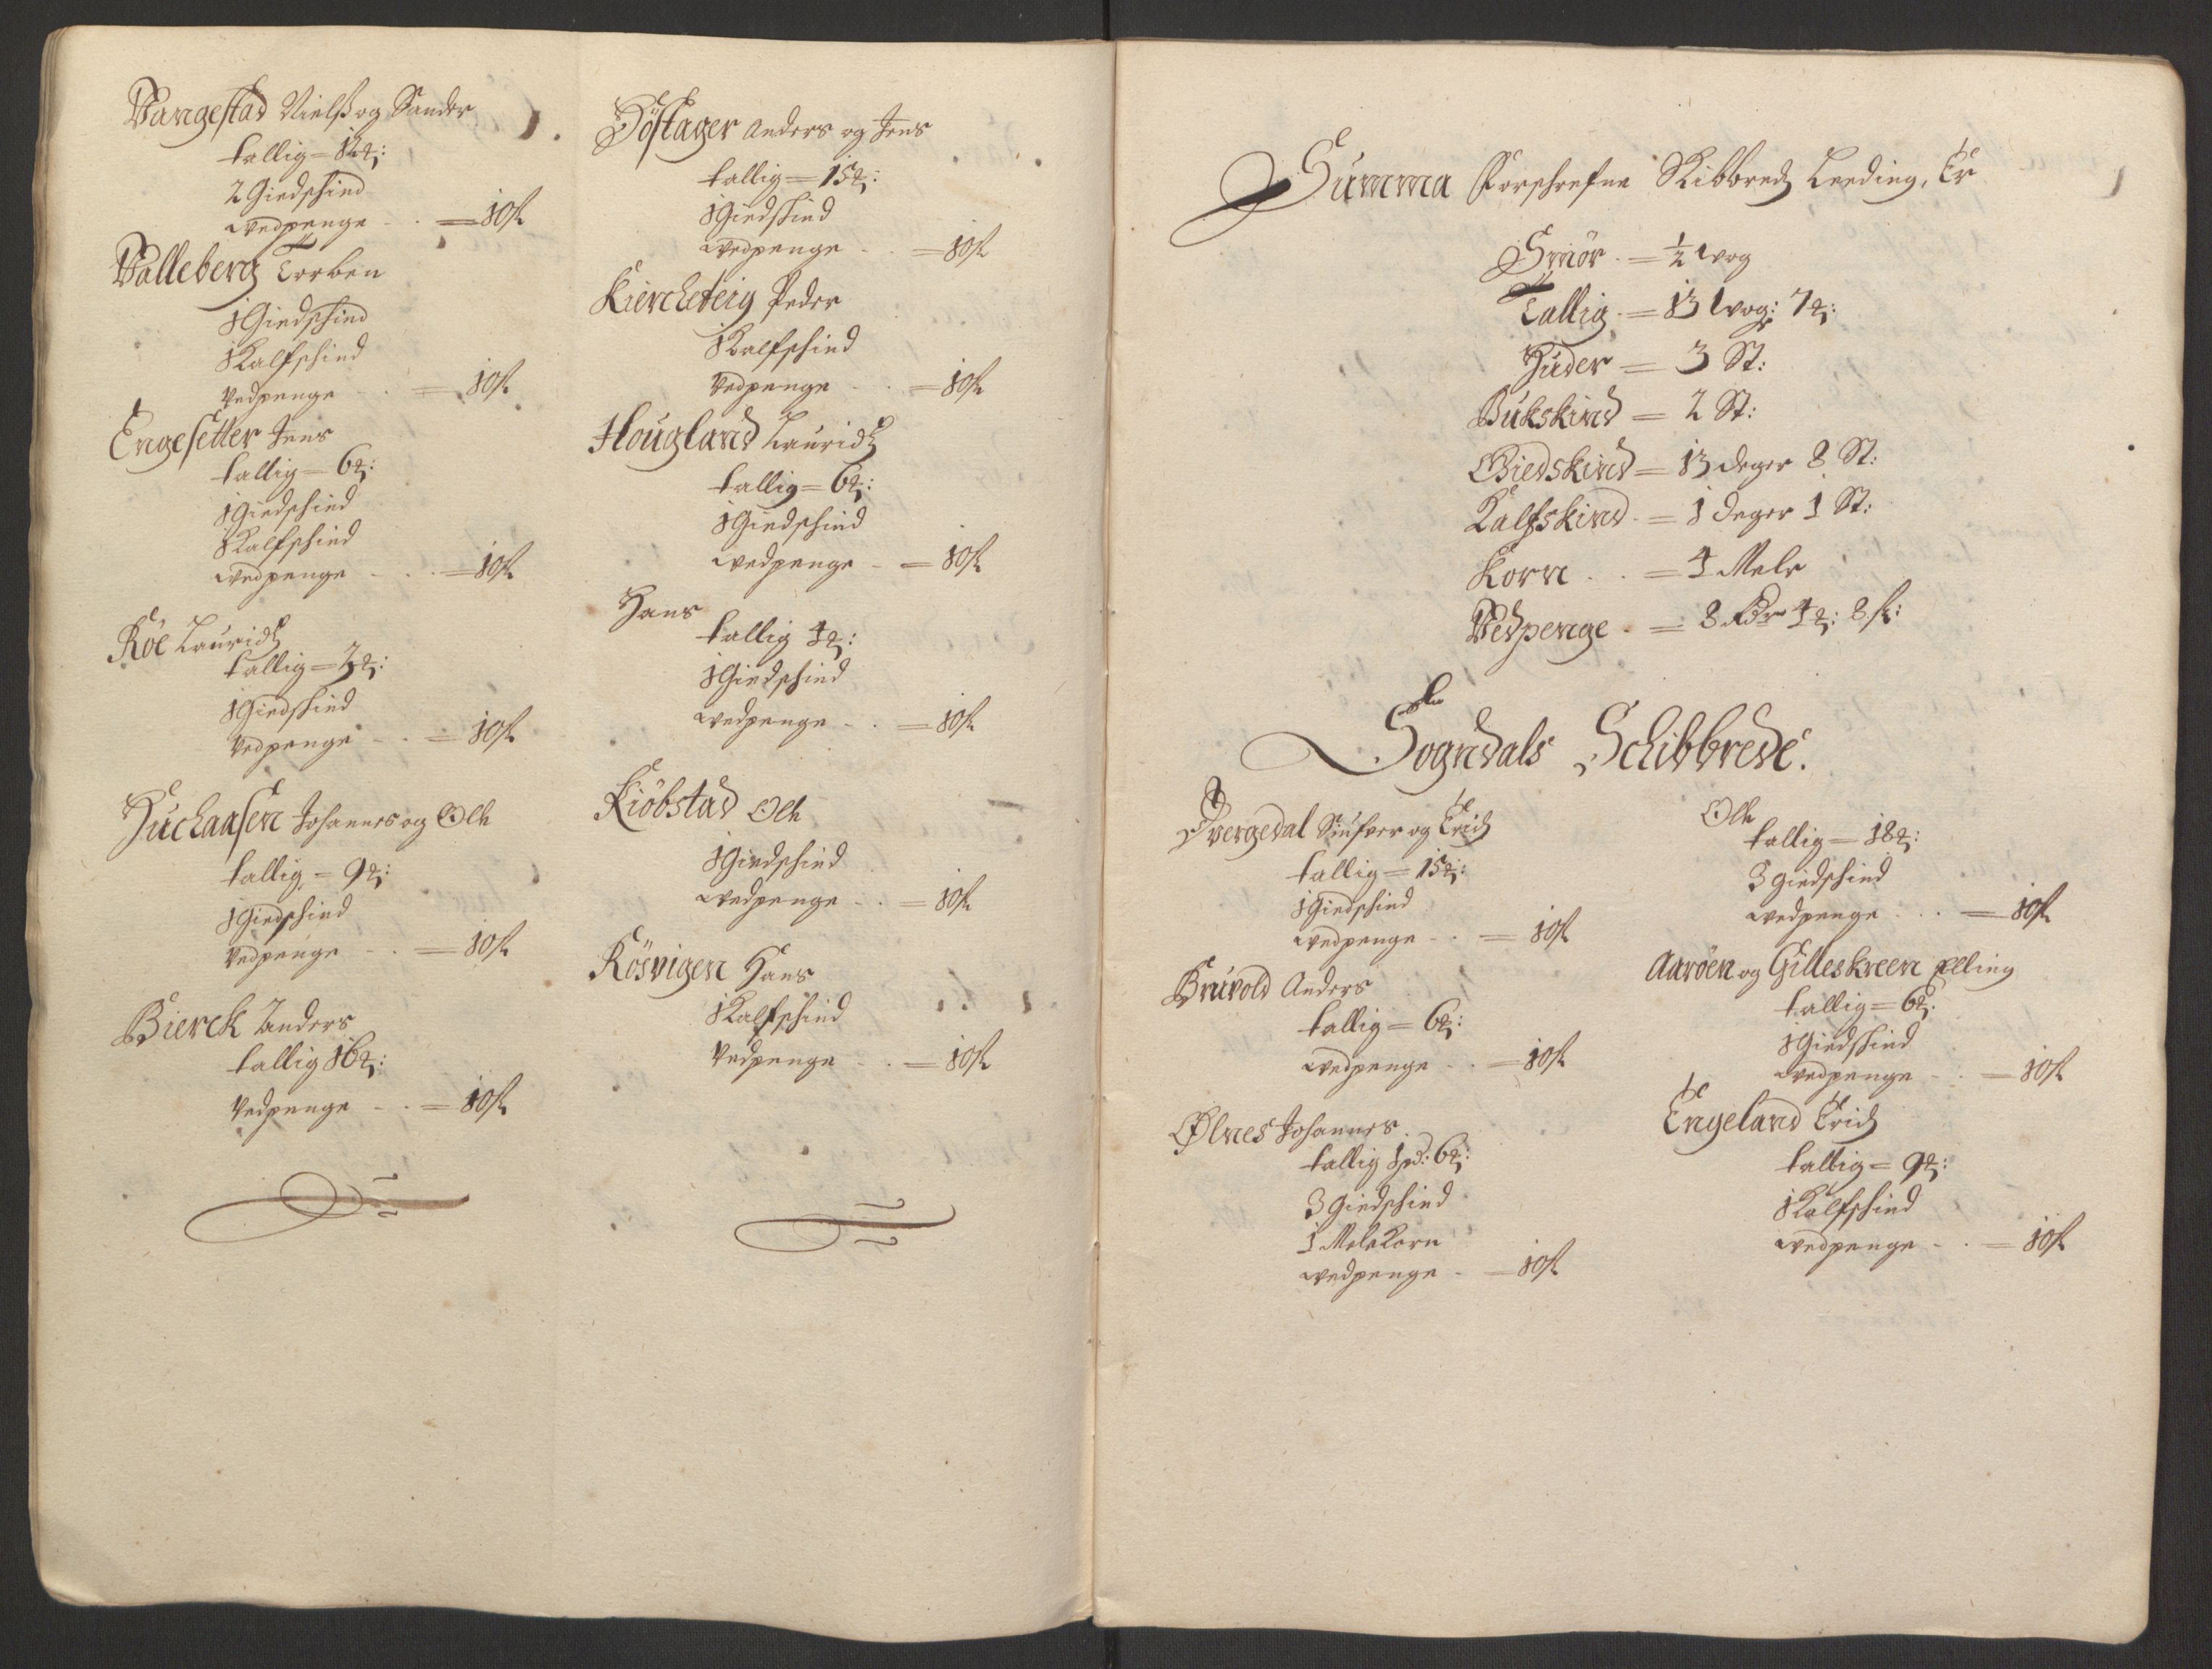 Vangestad Nielß og Sander
tallig = 12 ℔:
2 Giedschind
wedpenge - . = 10 ß
Valleberg Torben
1 Giedschind
1 Kalfschind
Vedpenge - . = 10 ß
Engesetter Jens
tallig = 6 ℔:
1 Giedschind
1 Kalfschind
wedpenge - . . = 10 ß
Röe Lauridz
tallig = 3 ℔:
1 Giedschind
Vedpenge - . = 10 ß
Huchaasen Johannes og Ole
tallig = 9 ℔:
1 Giedschind
Vedpenge - . = 10 ß
Bierck Anders
tallig 16 ℔:
Vedpenge - . = 10 ß
Döstager Anders og Jens
tallig = 15 ℔:
1 Giedschind
wedpenge . = 10 ß
Kircheteig Peder
1 Kalfschind
Vedpenge - . = 10 ß
Hougland Lauridz
tallig = 6 ℔:
1 Giedschind
wedpenge - = 10 ß
Hans
tallig 4 ℔:
1 Giedschind
wedpenge - . = 10 ß
Kiöbstad Ole
1 Giedschind
wedpenge - . = 10 ß
Rösvigen Hans
1 Kalfschind
Vedpenge - . = 10 ß
Summa Forschrefne Skibbredz Leeding, Er
Smör . = ½ wog
Tallig . = 13 wog: 7 ℔:
Huder = 3 St:
Bukskind = 2 St:
Giedskind = 13 deger 8 St:
Kalfskind . = 1 deger 1 St:
Korn . . = 4 Mele
Vedpenge . = 8 Rdr 4 ℔: 8 ß:
Sogndals Schibbrede.
Dvergedal Siufver og Erich
tallig = 15 ℔:
1 Giedschind
wedpenge - . = 10 ß
Bruvold Anders
tallig = 6 ℔:
wedpenge - . = 10 ß
Ølnes Johannes
tallig 1 pd: 6 ℔:
3 Giedschind
1 Mele Korn
wedpenge - = 10 ß
Ole
tallig = 18 ℔:
3 giedschind
wedpenge . . = 10 ß
Aaröen og Gilleskreen Elling
tallig = 6 ℔:
1 Giedschind
wedpenge - . = 10 ß
Engeland Erich
tallig = 9 ℔:
1 Kalfschind
wedpenge - . = 10 ß